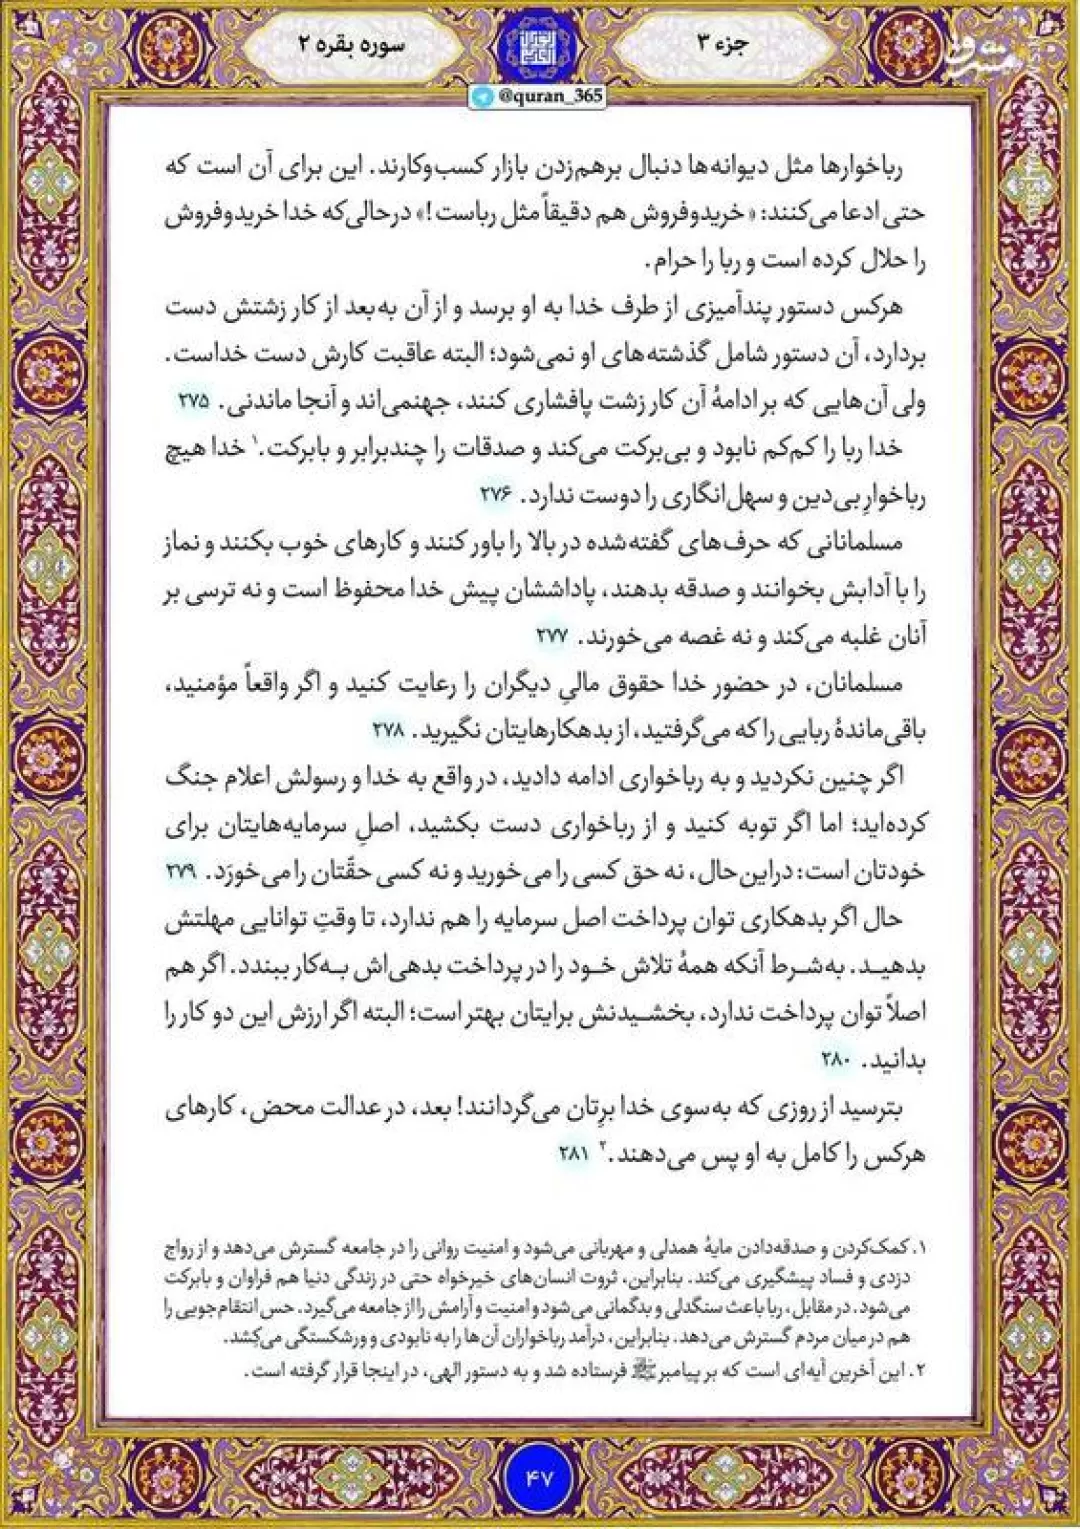 جزء ۳
سوره بقره ۲
@quran_365
رباخوارها مثل دیوانه‌ها دنبال برهم‌زدن بازار کسب‌وکارند. این برای آن است که
حتی ادعا می‌کنند: «خریدوفروش هم دقیقاً مثل رباست!» درحالی‌که خدا خریدوفروش
را حلال کرده است و ربا را حرام.
هرکس دستور پندآمیزی از طرف خدا به او برسد و از آن به‌بعد از کار زشتش دست
بردارد، آن دستور شامل گذشته‌های او نمی‌شود؛ البته عاقبت کارش دست خداست.
ولی آن‌هایی که بر ادامهٔ آن کار زشت پافشاری کنند، جهنمی‌اند و آنجا ماندنی. ۲۷۵
خدا ربا را کم‌کم نابود و بی‌برکت می‌کند و صدقات را چندبرابر و بابرکت.۱ خدا هیچ
رباخوارِ بی‌دین و سهل‌انگاری را دوست ندارد. ۲۷۶
مسلمانانی که حرف‌های گفته‌شده در بالا را باور کنند و کارهای خوب بکنند و نماز
را با آدابش بخوانند و صدقه بدهند، پاداششان پیش خدا محفوظ است و نه ترسی بر
آنان غلبه می‌کند و نه غصه می‌خورند. ۲۷۷
مسلمانان، در حضور خدا حقوق مالیِ دیگران را رعایت کنید و اگر واقعاً مؤمنید،
باقی‌ماندهٔ ربایی را که می‌گرفتید، از بدهکارهایتان نگیرید. ۲۷۸
اگر چنین نکردید و به رباخواری ادامه دادید، در واقع به خدا و رسولش اعلام جنگ
کرده‌اید؛ اما اگر توبه کنید و از رباخواری دست بکشید، اصلِ سرمایه‌هایتان برای
خودتان است: دراین‌حال، نه حق کسی را می‌خورید و نه کسی حقّتان را می‌خورَد. ۲۷۹
حال اگر بدهکاری توان پرداخت اصل سرمایه را هم ندارد، تا وقتِ توانایی مهلتش
بدهید. به‌شرط آنکه همهٔ تلاش خود را در پرداخت بدهی‌اش به‌کار ببندد. اگر هم
اصلاً توان پرداخت ندارد، بخشیدنش برایتان بهتر است؛ البته اگر ارزش این دو کار را
بدانید. ۲۸۰
بترسید از روزی که به‌سوی خدا برِتان می‌گردانند! بعد، در عدالت محض، کارهای
هرکس را کامل به او پس می‌دهند.۲ ۲۸۱
۱. کمک‌کردن و صدقه‌دادن مایهٔ همدلی و مهربانی می‌شود و امنیت روانی را در جامعه گسترش می‌دهد و از رواج
دزدی و فساد پیشگیری می‌کند. بنابراین، ثروت انسان‌های خیرخواه حتی در زندگی دنیا هم فراوان و بابرکت
می‌شود. در مقابل، ربا باعث سنگدلی و بدگمانی می‌شود و امنیت و آرامش را از جامعه می‌گیرد. حس انتقام‌جویی را
هم در میان مردم گسترش می‌دهد. بنابراین، درآمد رباخواران آن‌ها را به نابودی و ورشکستگی می‌کِشد.
۲. این آخرین آیه‌ای است که بر پیامبر ﷺ فرستاده شد و به دستور الهی، در اینجا قرار گرفته است.
۴۷